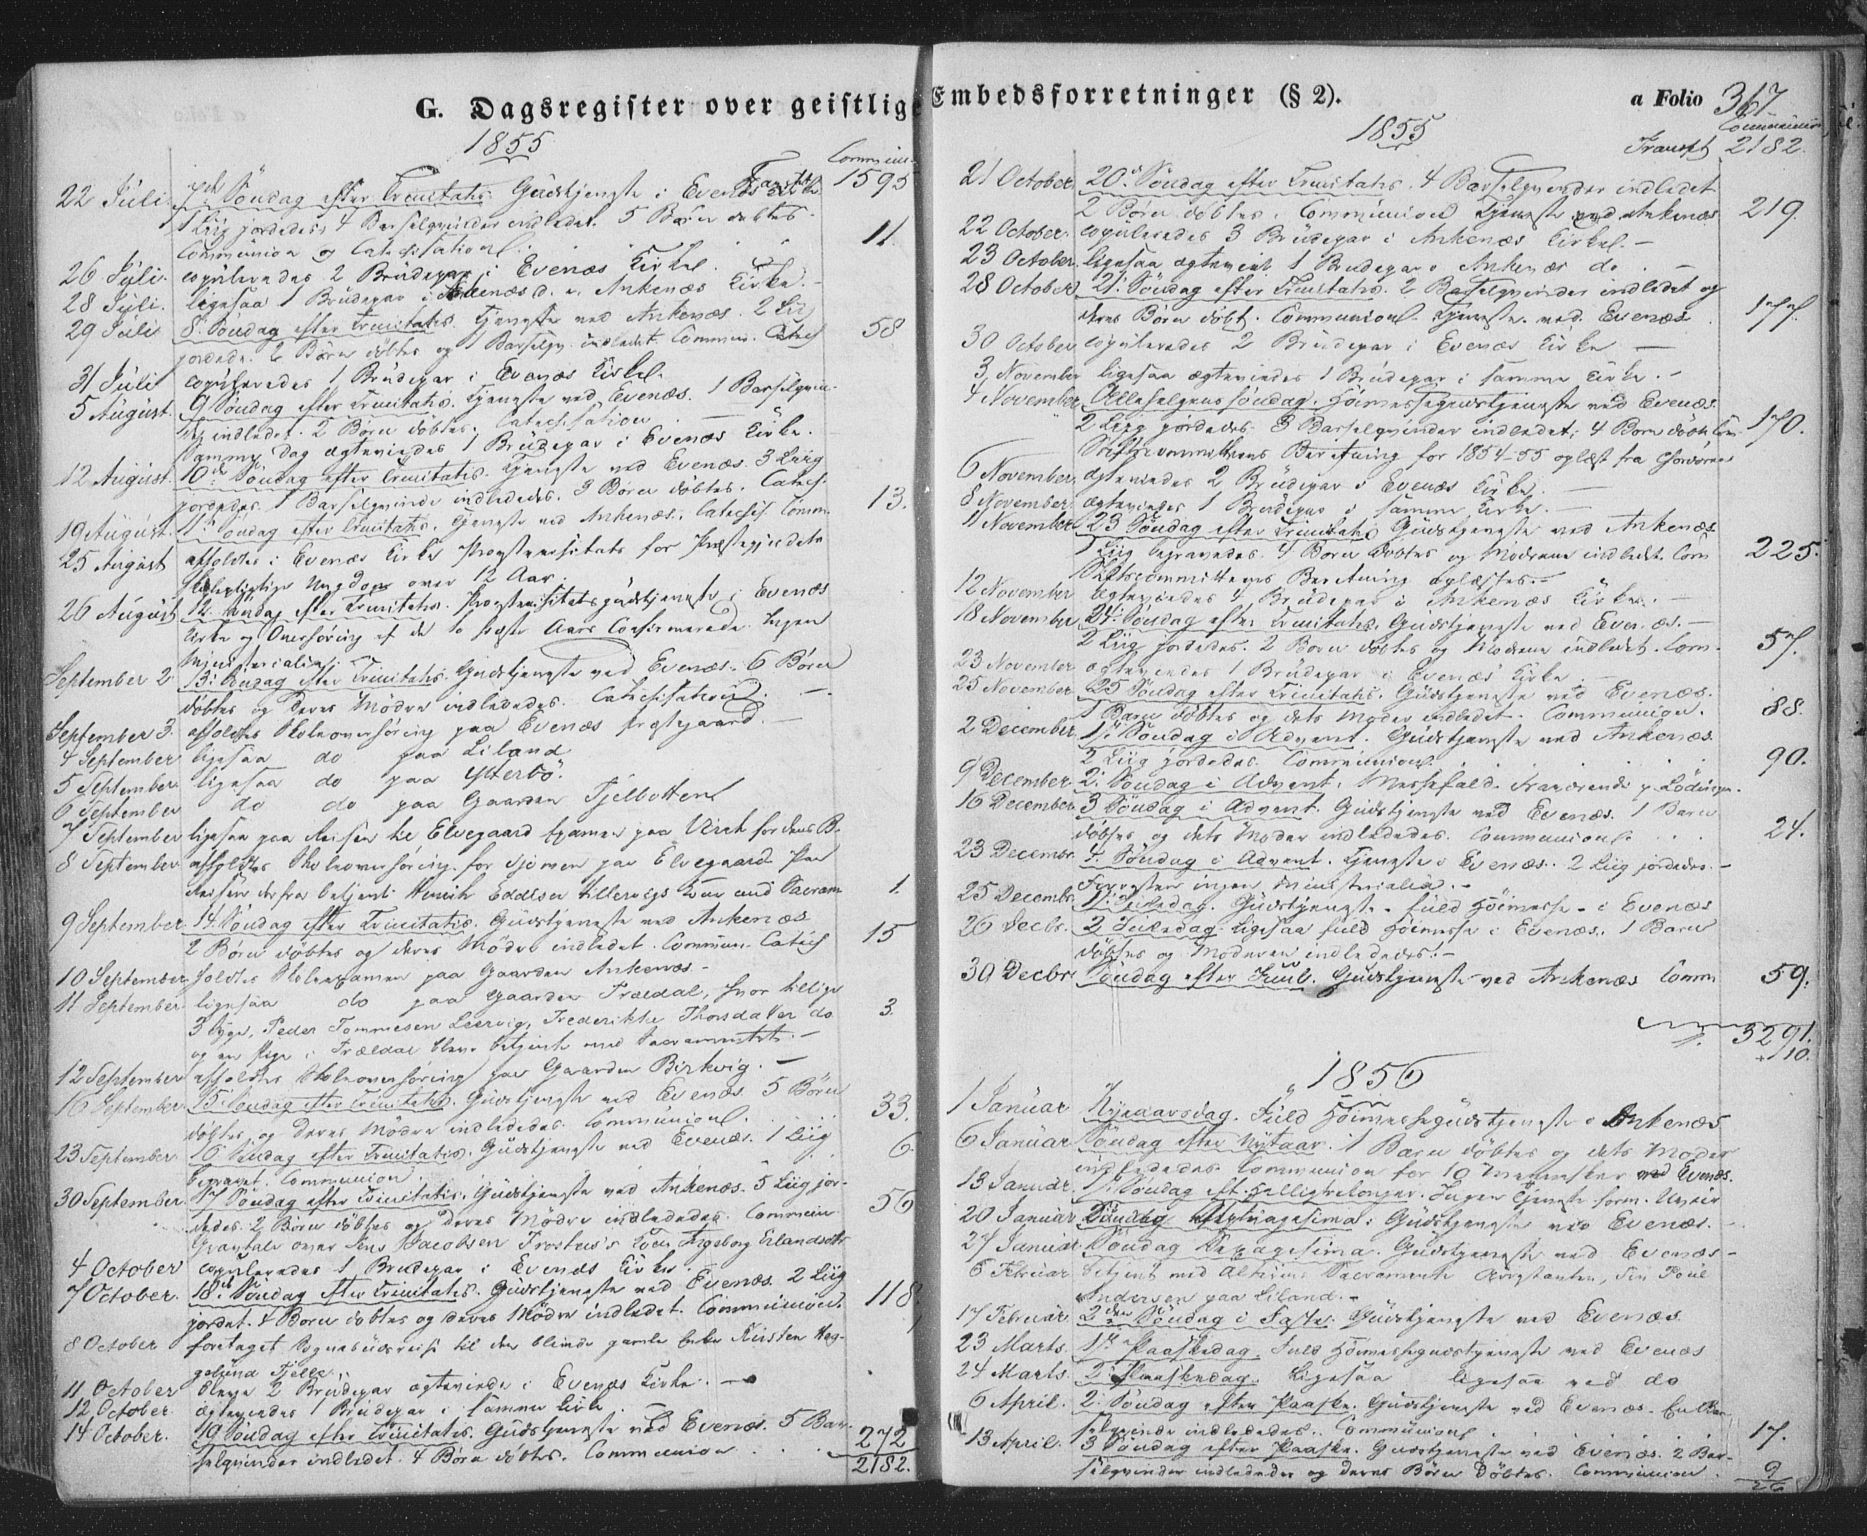 G. Dagsregister over geistlige
1855
Commun.
Transpt 1595
22 Juli. 7de Søndag efter Trinitatis. Gudstjeneste i Evenæs Kirke
1 Liig jordedes, 4 Barselqvinder indledet. 5 Børn døbtes.
Communion og Catechisation. 11.
26 Juli. copuleredes 2 Brudepar i Evenæs Kirke.
28 Juli. ligesaa 1 Brudepar i Ankenæs Kirke.
29 Juli 8. Søndag efter Trinitatis. Tjeneste ved Ankenæs. 2 Liig
jordede. 2 Børn døbtes og 1 Barselqv. indledet. Commun. Catech 58
31 Juli copuleredes 1 Brudepar i Evenæs Kirke.
5 August. 9 Søndag efter Trinitatis. Tjeneste ved Evenæs. 1 Barselqvin-
de indledet. 2 Børn døbtes. Catechisation
Samme Dag ægteviedes 1 Brudepar i Evenæs Kirke.
12 August. 10de Søndag efter Trinitatis. Tjeneste ved Evenæs. 3 Liig
jordedes. 1 Barselqvinde indledes. 3 Børn døbtes. Catech.
19 August. 11te Søndag efter Trinitatis. Tjeneste ved Ankenæs. Catechis. Comm. 13.
25 August afholdtes i Evenæs Kirke Provstevisitats for Præstegjeldets
Ungdom over 12 Aar.
26 August 12. Søndag efter Trinitatis. Provstevisitatsgudstjeneste i Evenæs
Kirke og Overhøring af de to sidste Aars Confirmerede. Ingen
Ministerialia.
September 2. 13. Søndag efter Trinitatis. Gudstjeneste ved Evenæs. 6 Børn
døbtes og deres Mødre indledes. Catechisation.
September 3. afholdtes Skoleoverhøring paa Evenæs Præstegaard.
4 September ligesaa do paa Liland
5 September ligesaa do paa Ytterbø.
6 September do do paa Gaarden Fjelbotten
7 September ligesaa paa Reisen til Elvegaard
8 September afholdtes Skoleoverhøring for Sjømen paa Elvegaard. Paa
Reisen derfra betjent Henrik med Sacram 1.
9 September. 14. Søndag efter Trinitatis. Gudstjeneste ved Ankenæs.
2 Børn døbtes og deres Mødre indledet. Commun. Catech 15
10 September holdtes Skoleexamen paa Gaarden Ankenæs.
11 September. ligesaa do paa Gaarden Trældal, hvor tillige
3 syge, Peder Tommesen Leervig, Frederikke Thorsdatter do
og en Pige i Trældal bleve betjent med Sacramentet. 3.
12 September afholdtes Skoleoverhøring paa Gaarden Birkvig.
16 September. 15. Søndag efter Trinitatis. Gudstjeneste ved Evenæs. 5 Børn
døbtes og deres Mødre indledes. Communion. 33.
23 September. 16 Søndag efter Trinitatis. Gudstjeneste ved Evenæs. 1 Liig
begravet. Communion. 6.
30 September. 17 Søndag efter Trinitatis. Gudstjeneste ved Ankenæs. 5 Liig jor-
dedes. 2 Børn døbtes og deres Mødre indledes. Commun 56
Gravtale over Jens Jacobsen Ingeborg Erlandsdtr
4 October copuleredes 1 Brudepar i Evenæs Kirke.
7 October. 18de Søndag efter Trinitatis. Gudstjeneste ved Evenæs. 2 Liig
jordet. 4 Børn døbtes og deres Mødre indledet. Communion. 118.
8 October foretaget Sognebudsreise til den blinde gamle Enke Kirsten Hag-
Fjelle. 1
11 October bleve 2 Brudepar ægteviede i Evenæs Kirke.
12 October. ægteviedes 1 Brudepar i samme Kirke
14 October. 19 Søndag efter Trinitatis. Gudstjeneste ved Evenæs. 5 Bar-
selqvinder indledet. 4 Børn døbtes. Communion 272
2182.
Embedsforretninger (§ 2).
a Folio 367
1855
Communion
Transpt 2182.
21 October. 20. Søndag efter Trinitatis. 4 Barselqvinder indledet
2 Børn døbtes. Communion. Tjeneste ved Ankenæs 219.
22 October. copuleredes 3 Brudepar i Ankenæs Kirke.
23 October. ligesaa ægteviet 1 Brudepar i Ankenæs do.
28 October 21. Søndag efter Trinitatis. 2 Barselqvinder indledet og
deres Børn døbt. Communion. Tjeneste ved Evenæs 177.
30 October copuleredes 2 Brudepar i Evenæs Kirke
3 November ligesaa ægteviedes 1 Brudepar i samme Kirke.
4 November Allehelgenssøndag. Høimessegudstjeneste ved Evenæs
2 Liig jordedes 3 Barselqvinder indledet; 4 Børn døbte Com 170.
Beretning for 1854-55 oplæst fra Chordøren
6 November. ægteviedes 2 Brudepar i Evenæs Kirke.
8 November. ægteviedes 1 Brudepar i samme Kirke.
11 November 23 Søndag efter Trinitatis Gudstjeneste ved Ankenæs
1 Liig begravedes. 4 Børn døbtes og Mødrene indledet. Com 225.
Beretning oplæstes.
12 November ægteviedes 4 Brudepar i Ankenæs Kirke.
18 November 24. Søndag efter Trinitatis. Gudstjeneste ved Evenæs.
2 Liig jordedes. 2 Børn døbtes og Mødrene indledet. Com. 57.
23 November ægteviedes 1 Brudepar i Evenæs Kirke.
25 November. 25 Søndag efter Trinitatis. Gudstjeneste ved Evenæs.
1 Barn døbtes og dets Moder indledet. Communion. 88.
2 December. 1. Søndag i Advent. Gudstjeneste ved Ankenæs
2 Liig jordedes. Communion. 90.
9 December. 2. Søndag i Advent. Messefald. Fraværende p. Lødingen.
16 December. 3 Søndag i Advent. Gudstjeneste ved Evenæs. 1 Barn
døbtes og dets Moder indledes. Communion. 24.
23 Decembr. 4. Søndag i Advent. Tjeneste i Evenæs. 2 Liig jordedes.
Forresten ingen Ministerialia.
25 Decembr. 1. Juledag. Gudstjeneste. fuld Høimesse i Evenæs
26 Decbr. 2. Juledag. ligesaa fuld Høimesse i Evenæs. 1 Barn
døbtes og Moderen indledes.
30 Decbr Søndag efter Juul. Gudstjeneste ved Ankenæs Comm 59.
3291.
+ 10.
1856
1 Januar Nytaarsdag. Fuld Høimessegudstjeneste i Ankenæs
6 Januar Søndag efter Nytaar. 1 Barn døbtes og dets Moder
indledes. Communion for 10 Mennesker ved Evenæs.
13 Januar. 1. Søndag eft. Helligtrekonger. Ingen Tjeneste form. Uveir
20 Januar Søndag Septuagesima. Gudstjeneste ved Evenæs.
27 Januar. Søndag Sexagesima. Gudstjeneste ved Evenæs.
6 Februar betjent med Alterens Sacramente Arrestanten, Finn Poul
Andersen paa Liland.
17 Februar. 2den Søndag i Faste. Gudstjeneste ved Evenæs
23 Marts. 1ste Paaskedag. Fuld Høimessegudstjeneste ved Evenæs
24 Marts. 2. Paaskedag. Ligesaa ligesaa ved do
6 April. 2. Søndag efter Paaske. Gudstjeneste ved Evenæs. En Bar-
selqvinde indledes. Communion. 17.
13 April. 3 Søndag efter Paaske. Gudstjeneste ved Evenæs. 2 Bar-
selqvinder indledes og deres Børn døbtes. Communion. 9
26